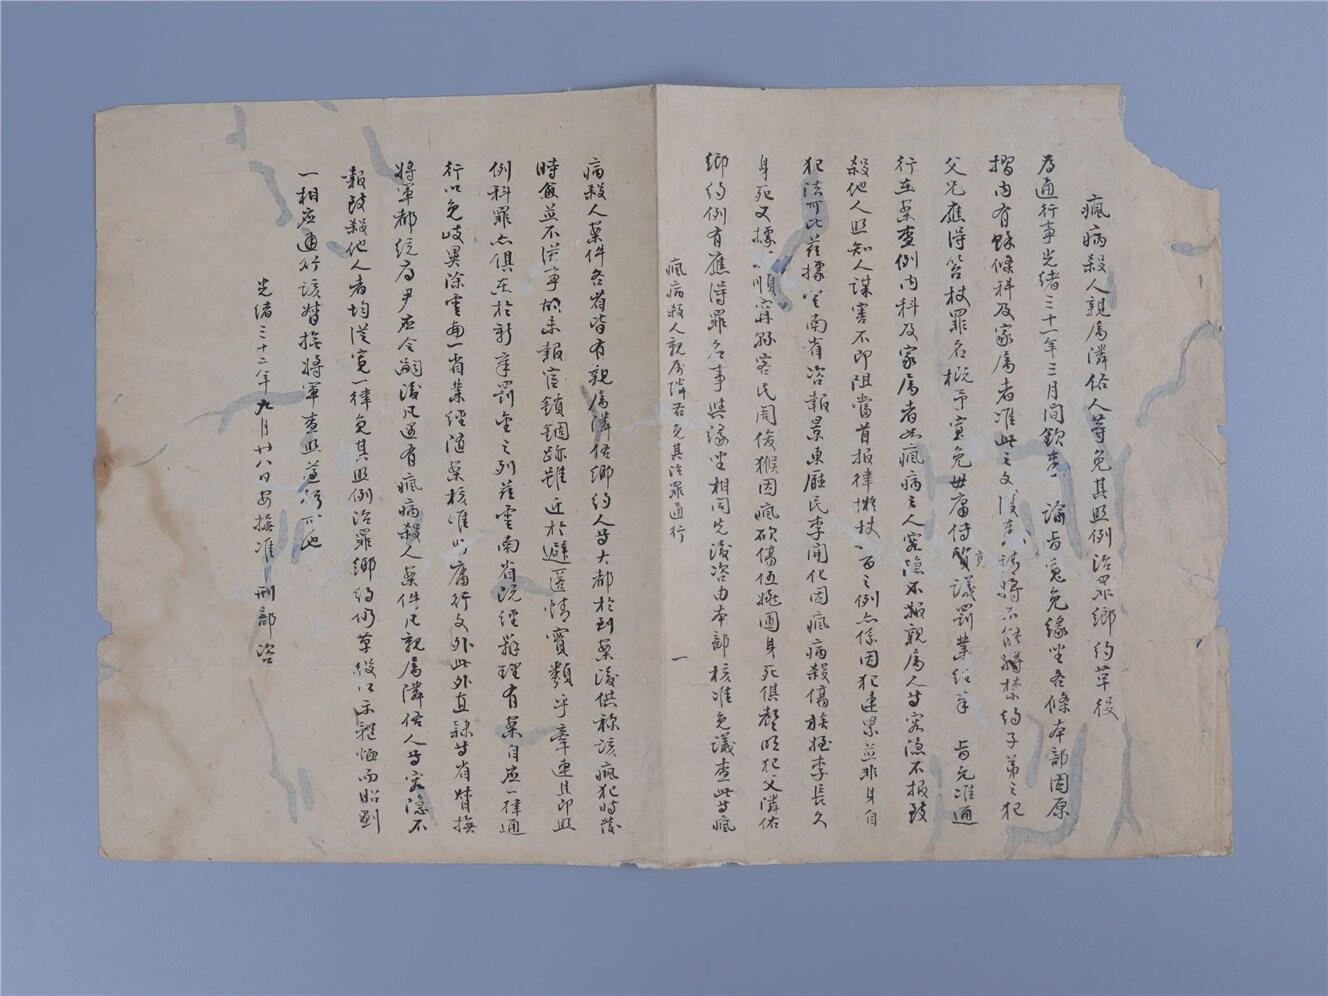 瘋病殺人親属鄰佑人等免其照例治罪鄉約革役
為通行事光緒三十一年三月間欽奉 諭旨寬免緣坐各條本部因原
摺内有餘條科及家属者准此之文復奏請將不能禁約子弟之犯
父兄應得笞杖罪名概予寬免毋庸侍質議罰業經奉 旨允准通
行在案查例内科及家属者如瘋病之人容隐不報親属人等容隐不报致
殺他人照知人謀害不即阻當首报律擬杖一百之例亦係因犯連累並非身自
犯法可比茲據雲南省咨報景東廳民李開化因瘋病殺傷族姪李長久
身死又據順寧縣客民周俊猴因瘋砍傷伍 身死俱聲明犯父鄰佑
鄉約例有應得罪名事與緣坐相同先後咨由本部核准免議查此等瘋
瘋病殺人親属鄰右免其治罪通行 一
病殺人案件各省皆有親属鄰佑鄉約人等大都於到案後供称該瘋犯時發
時愈並不滋事故未報官鎖錮跡雖近於避匿情實類乎牽連且即照
例科罪亦俱在於新章罰金之列茲雲南省既經辦理有案自應一律通
行以免歧異除雲南一省業經隨案核准毋庸行文外此外直隸等省督撫
將軍都統府尹应令嗣後凡遇有瘋病殺人案件凡親属鄰佑人等容隐不
報致殺他人者均從寬一律免其照例治罪鄉約仍革役以示體恤而昭劃
一相应通行該督撫將軍查照遵行可也
光緒三十二年九月廿八日安撫准刑部咨